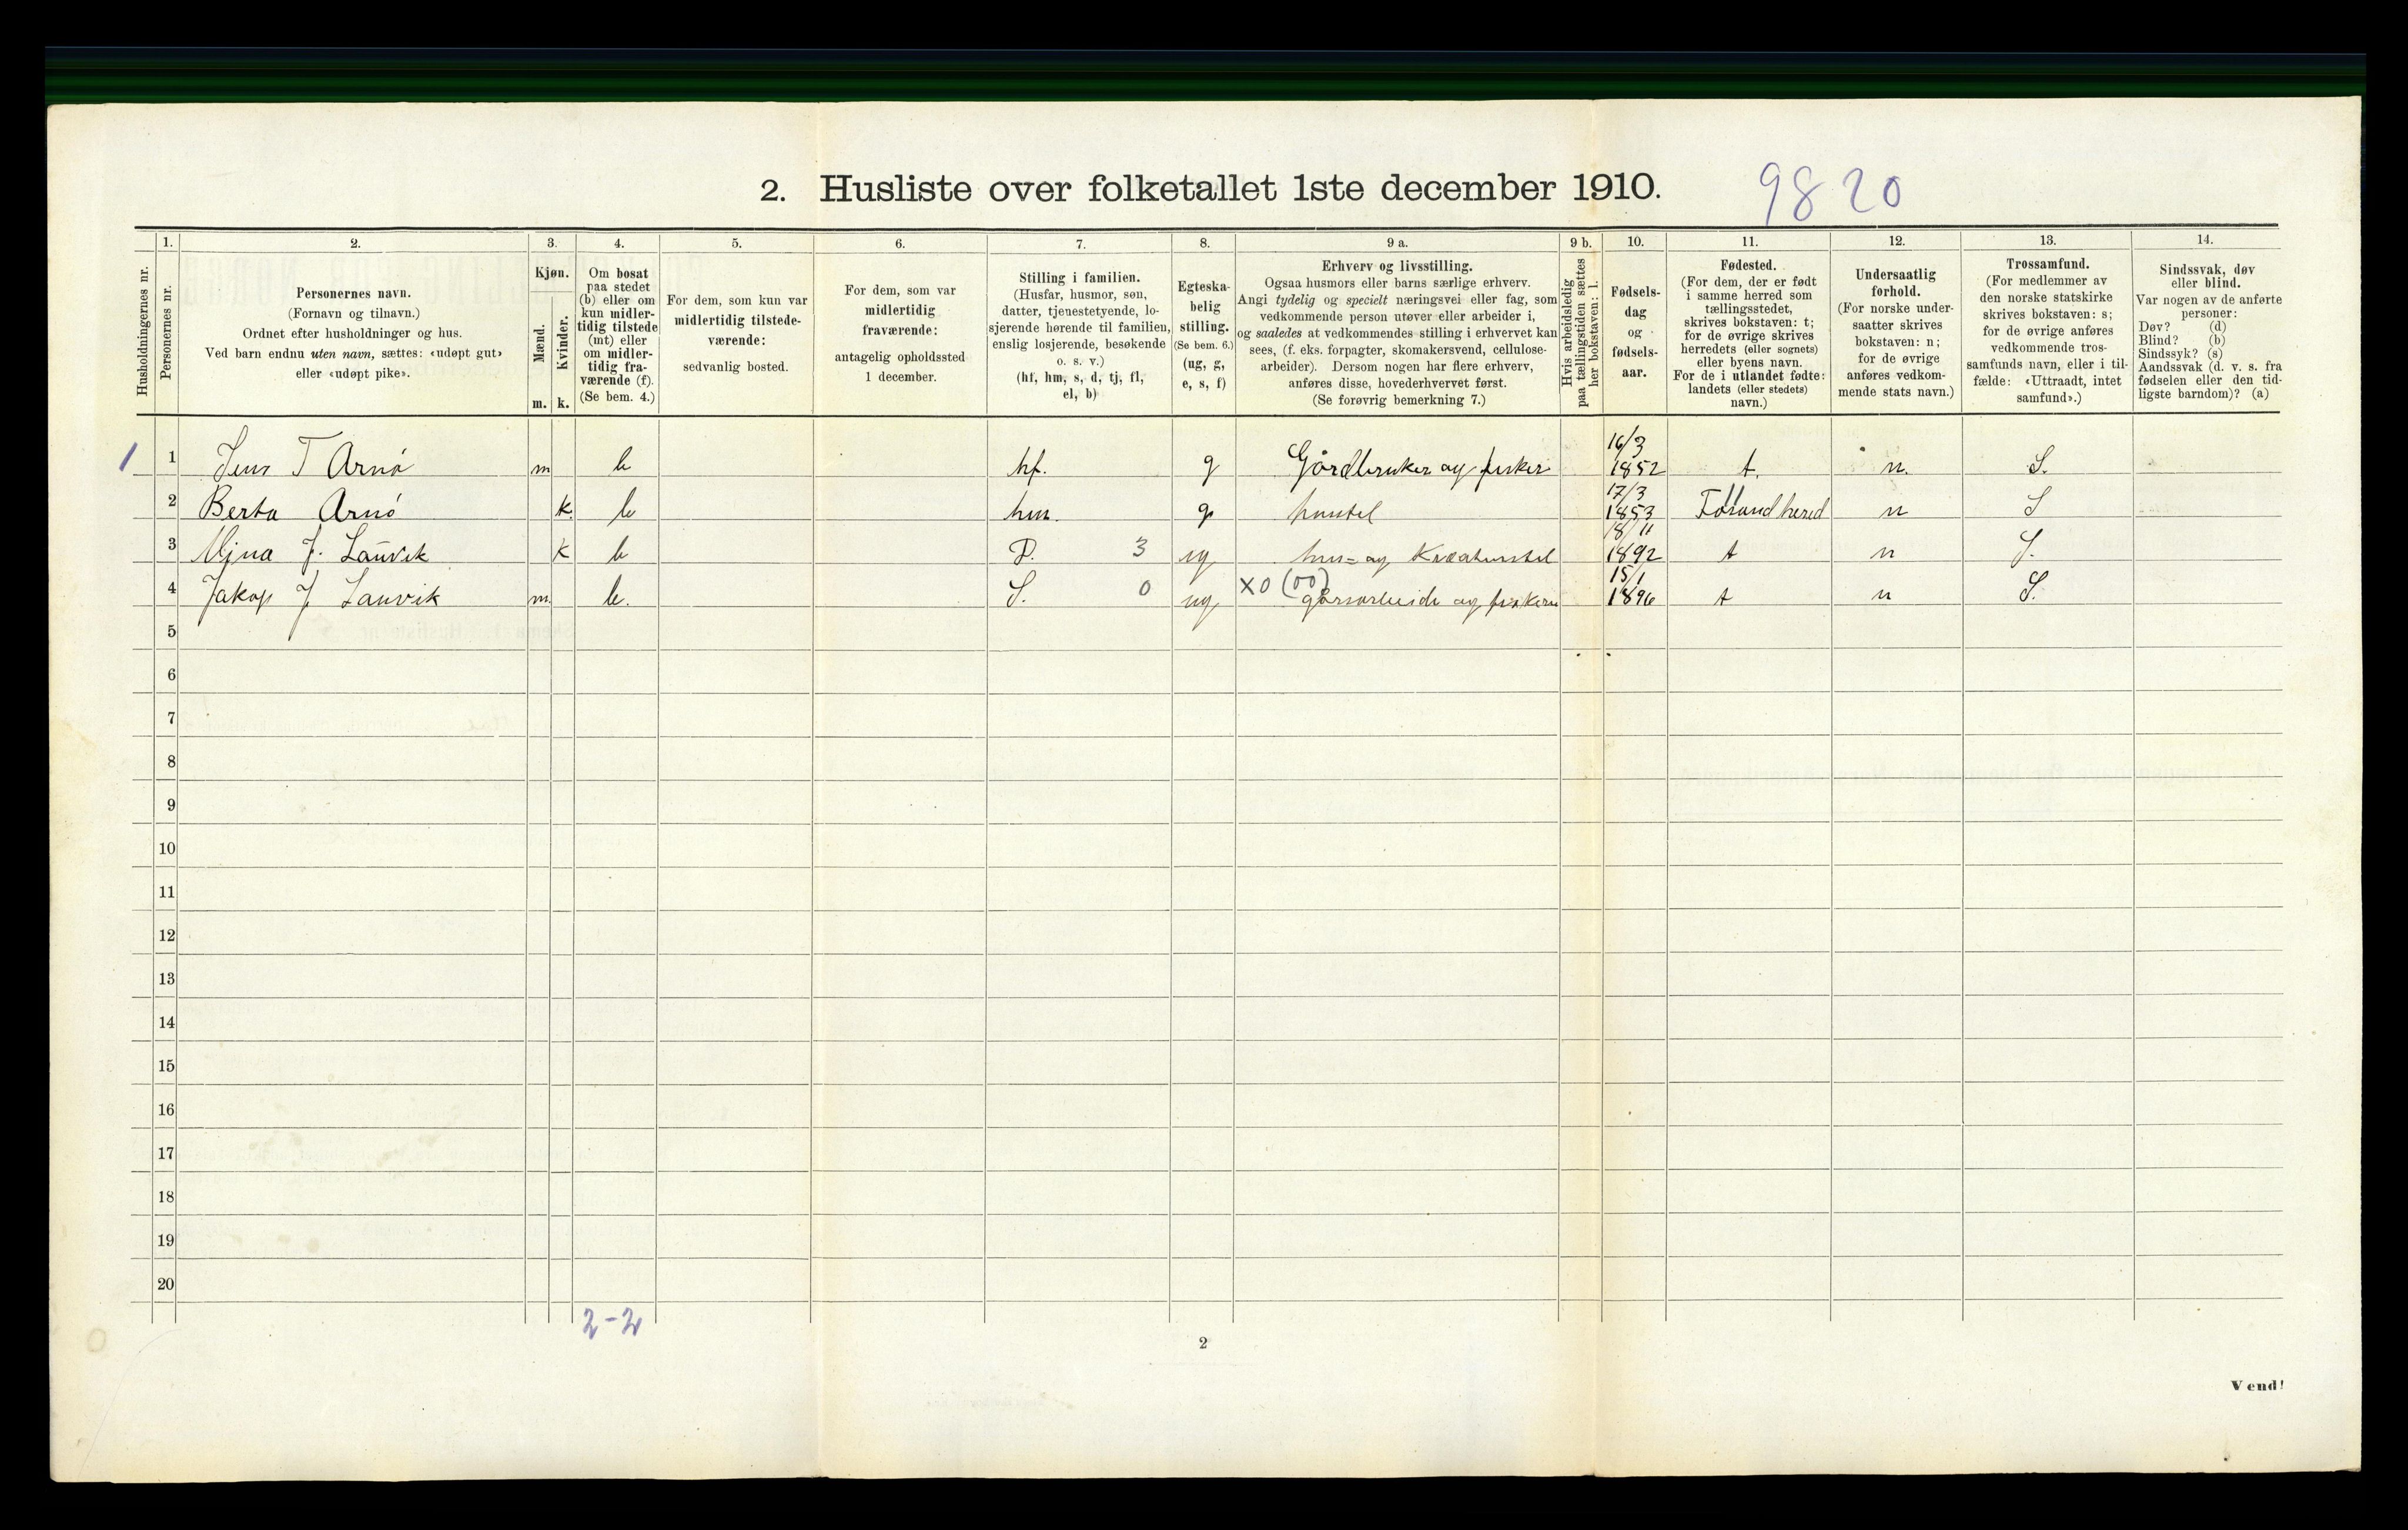 2. Husliste over folketallet 1ste december 1910.
9820
Husholdningernes nr.
1.
Personernes nr.
2.
Personernes navn.
(Fornavn og tilnavn.)
Ordnet efter husholdninger og hus.
Ved barn endnu uten navn, sættes: «udøpt gut»
eller «udøpt pike».
3.
Kjøn.
Mænd.
m.
Kvinder.
k.
4.
Om bosat
paa stedet
(b) eller om
kun midler-
tidig tilstede
(mt) eller
om midler-
tidig fra-
værende (f).
(Se bem. 4.)
5.
For dem, som kun var
midlertidig tilstede-
værende:
sedvanlig bosted.
6.
For dem, som var
midlertidig
fraværende:
antagelig opholdssted
1 december.
7.
Stilling i familien.
(Husfar, husmor, søn,
datter, tjenestetyende, lo-
sjerende hørende til familien,
enslig losjerende, besøkende
o. s. v.)
(hf, hm, s, d, tj, fl,
el, b)
8.
Egteska-
belig
stilling.
(Se bem. 6.)
(ug, g,
e, s, f)
9 a.
Erhverv og livsstilling.
Ogsaa husmors eller barns særlige erhverv.
Angi tydelig og specielt næringsvei eller fag, som
vedkommende person utøver eller arbeider i,
og saaledes at vedkommendes stilling i erhvervet kan
sees, (f. eks. forpagter, skomakersvend, cellulose-
arbeider). Dersom nogen har flere erhverv,
anføres disse, hovederhvervet først.
(Se forøvrig bemerkning 7.)
9 b.
Hvis arbeidsledig
paa tællingstiden sættes
her bokstaven: l.
10.
Fødsels-
dag
og
fødsels-
aar.
11.
Fødested.
(For dem, der er født
i samme herred som
tællingsstedet,
skrives bokstaven: t;
for de øvrige skrives
herredets (eller sognets)
eller byens navn.
For de i utlandet fødte:
landets (eller stedets)
navn.)
12.
Undersaatlig
forhold.
(For norske under-
saatter skrives
bokstaven: n;
for de øvrige
anføres vedkom-
mende stats navn.)
13.
Trossamfund.
(For medlemmer av
den norske statskirke
skrives bokstaven: s;
for de øvrige anføres
vedkommende tros-
samfunds navn, eller i til-
fælde: «Uttraadt, intet
samfund».)
14.
Sindssvak, døv
eller blind.
Var nogen av de anførte
personer:
Døv? (d)
Blind? (b)
Sindssyk? (s)
Aandssvak (d. v. s. fra
fødselen eller den tid-
ligste barndom)? (a)
1 1 Jens T Arnö m b hf. g Gårdbruker og fisker 16/3 1852 t. n. S.
2 Berta Arnö k. b hm. g hustel 17/3 1853 Fosand hered n S
3 Mina J. Lauvik k b D. 3 ug hus= og Kreaturstel 18/11 1892 t n S.
4 Jakop J Lauvik m. b. S. 0 ug X0 (00) gårsarbeide og fiskeri 15/1 1896 t n S.
5
6
7
8
9
10
11
12
13
14
15
16
17
18
19
20
2-2
2
Vend!